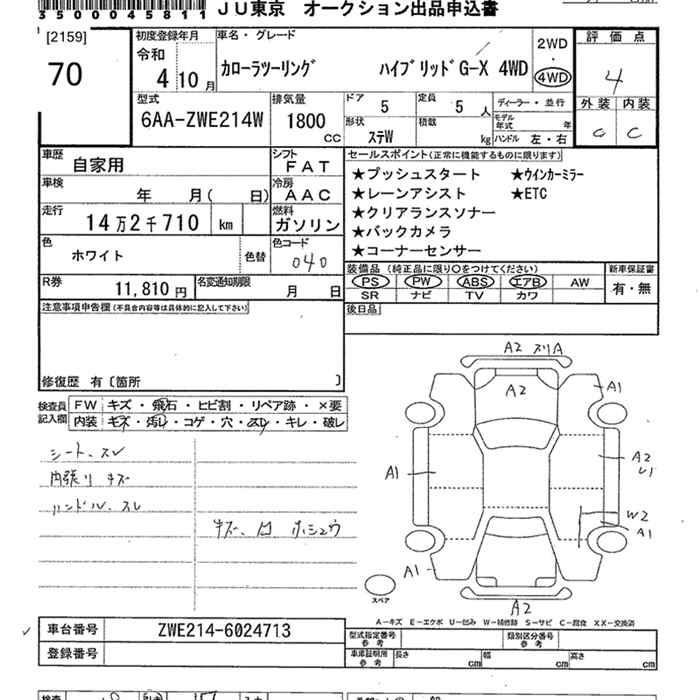 35004 5811 JU東京 オークション出品申込書
[2159]
70
初度登録年月
令和
4 10 月
車名・グレード
カローラツーリング ハイブリッドG-X 4WD
2WD
・
4WD
評価点
4
外装 内装
C C
型式
6AA-ZWE214W
排気量
1800
CC
ドア 5
定員 5 人
形状 ステW
積載 kg
ディーラー・並行
モデル年式 年
ハンドル 左・右
車歴
自家用
シフト
FAT
車検
年 月( 日)
冷房
AAC
走行
14万2千710 km
燃料
ガソリン
色
ホワイト
色替
色コード
040
R券
11,810円
名変通知期限
月 日
セールスポイント(正常に機能するものに限ります)
★プッシュスタート ★ウインカーミラー
★レーンアシスト ★ETC
★クリアランスソナー
★バックカメラ
★コーナーセンサー
装備品 (純正品に限り○をつけてください)
PS PW ABS エアB AW
SR ナビ TV カワ
新車保証書
有・無
注意事項申告欄(不具合内容等は具体的に記入して下さい)
後日品
修復歴 有〔箇所 〕
検査員記入欄
FW キズ・飛石・ヒビ割・リペア跡・×要
内装 キズ・汚レ・コゲ・穴・スレ・キレ・破レ
シート、スレ
内張り キズ
ハンドル、スレ
キズ、凹 ホシュウ
A2 スリA
A2
A1
A1
A2
W2
A1
A1
A2
スペア
A-キズ E-エクボ U-凹み W-補修跡 S-サビ C-腐食 XX-交換済
車台番号 ZWE214-6024713
登録番号
型式指定番号 参考
類別区分番号 参考
車庫証明用 参考
長さ cm
幅 cm
高さ cm